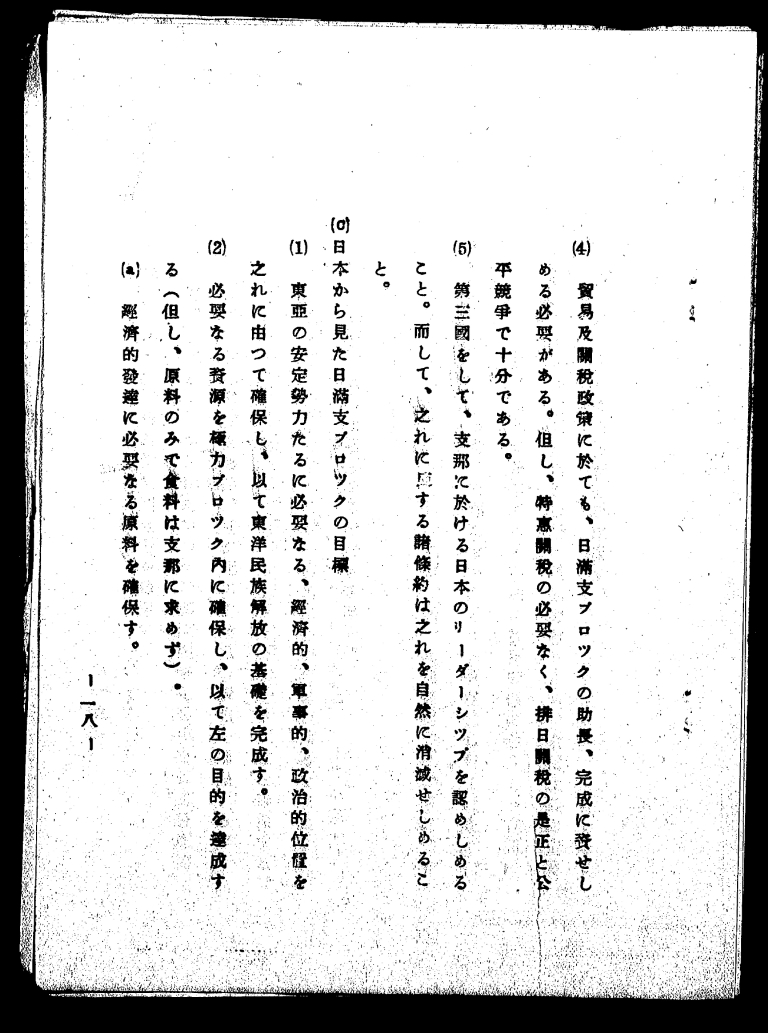 (4) 貿易及關税政策に於ても、日滿支ブロツクの助長、完成に資せし
める必要がある。但し、特惠關税の必要なく、排日關税の是正と公
平競爭で十分である。
(5) 第三國をして、支那に於ける日本のリーダーシツプを認めしめる
こと。而して、之れに する諸條約は之れを自然に消滅せしめるこ
と。
(c)日本から見た日滿支ブロツクの目標
(1) 東亞の安定勢力たるに必要なる、經濟的、軍事的、政治的位置を
之れに由つて確保し、以て東洋民族解放の基礎を完成す。
(2) 必要なる資源を極力ブロツク内に確保し、以て左の目的を達成す
る(但し、原料のみで食料は支那に求めず)。
(a) 經濟的發達に必要なる原料を確保す。
ー一八ー